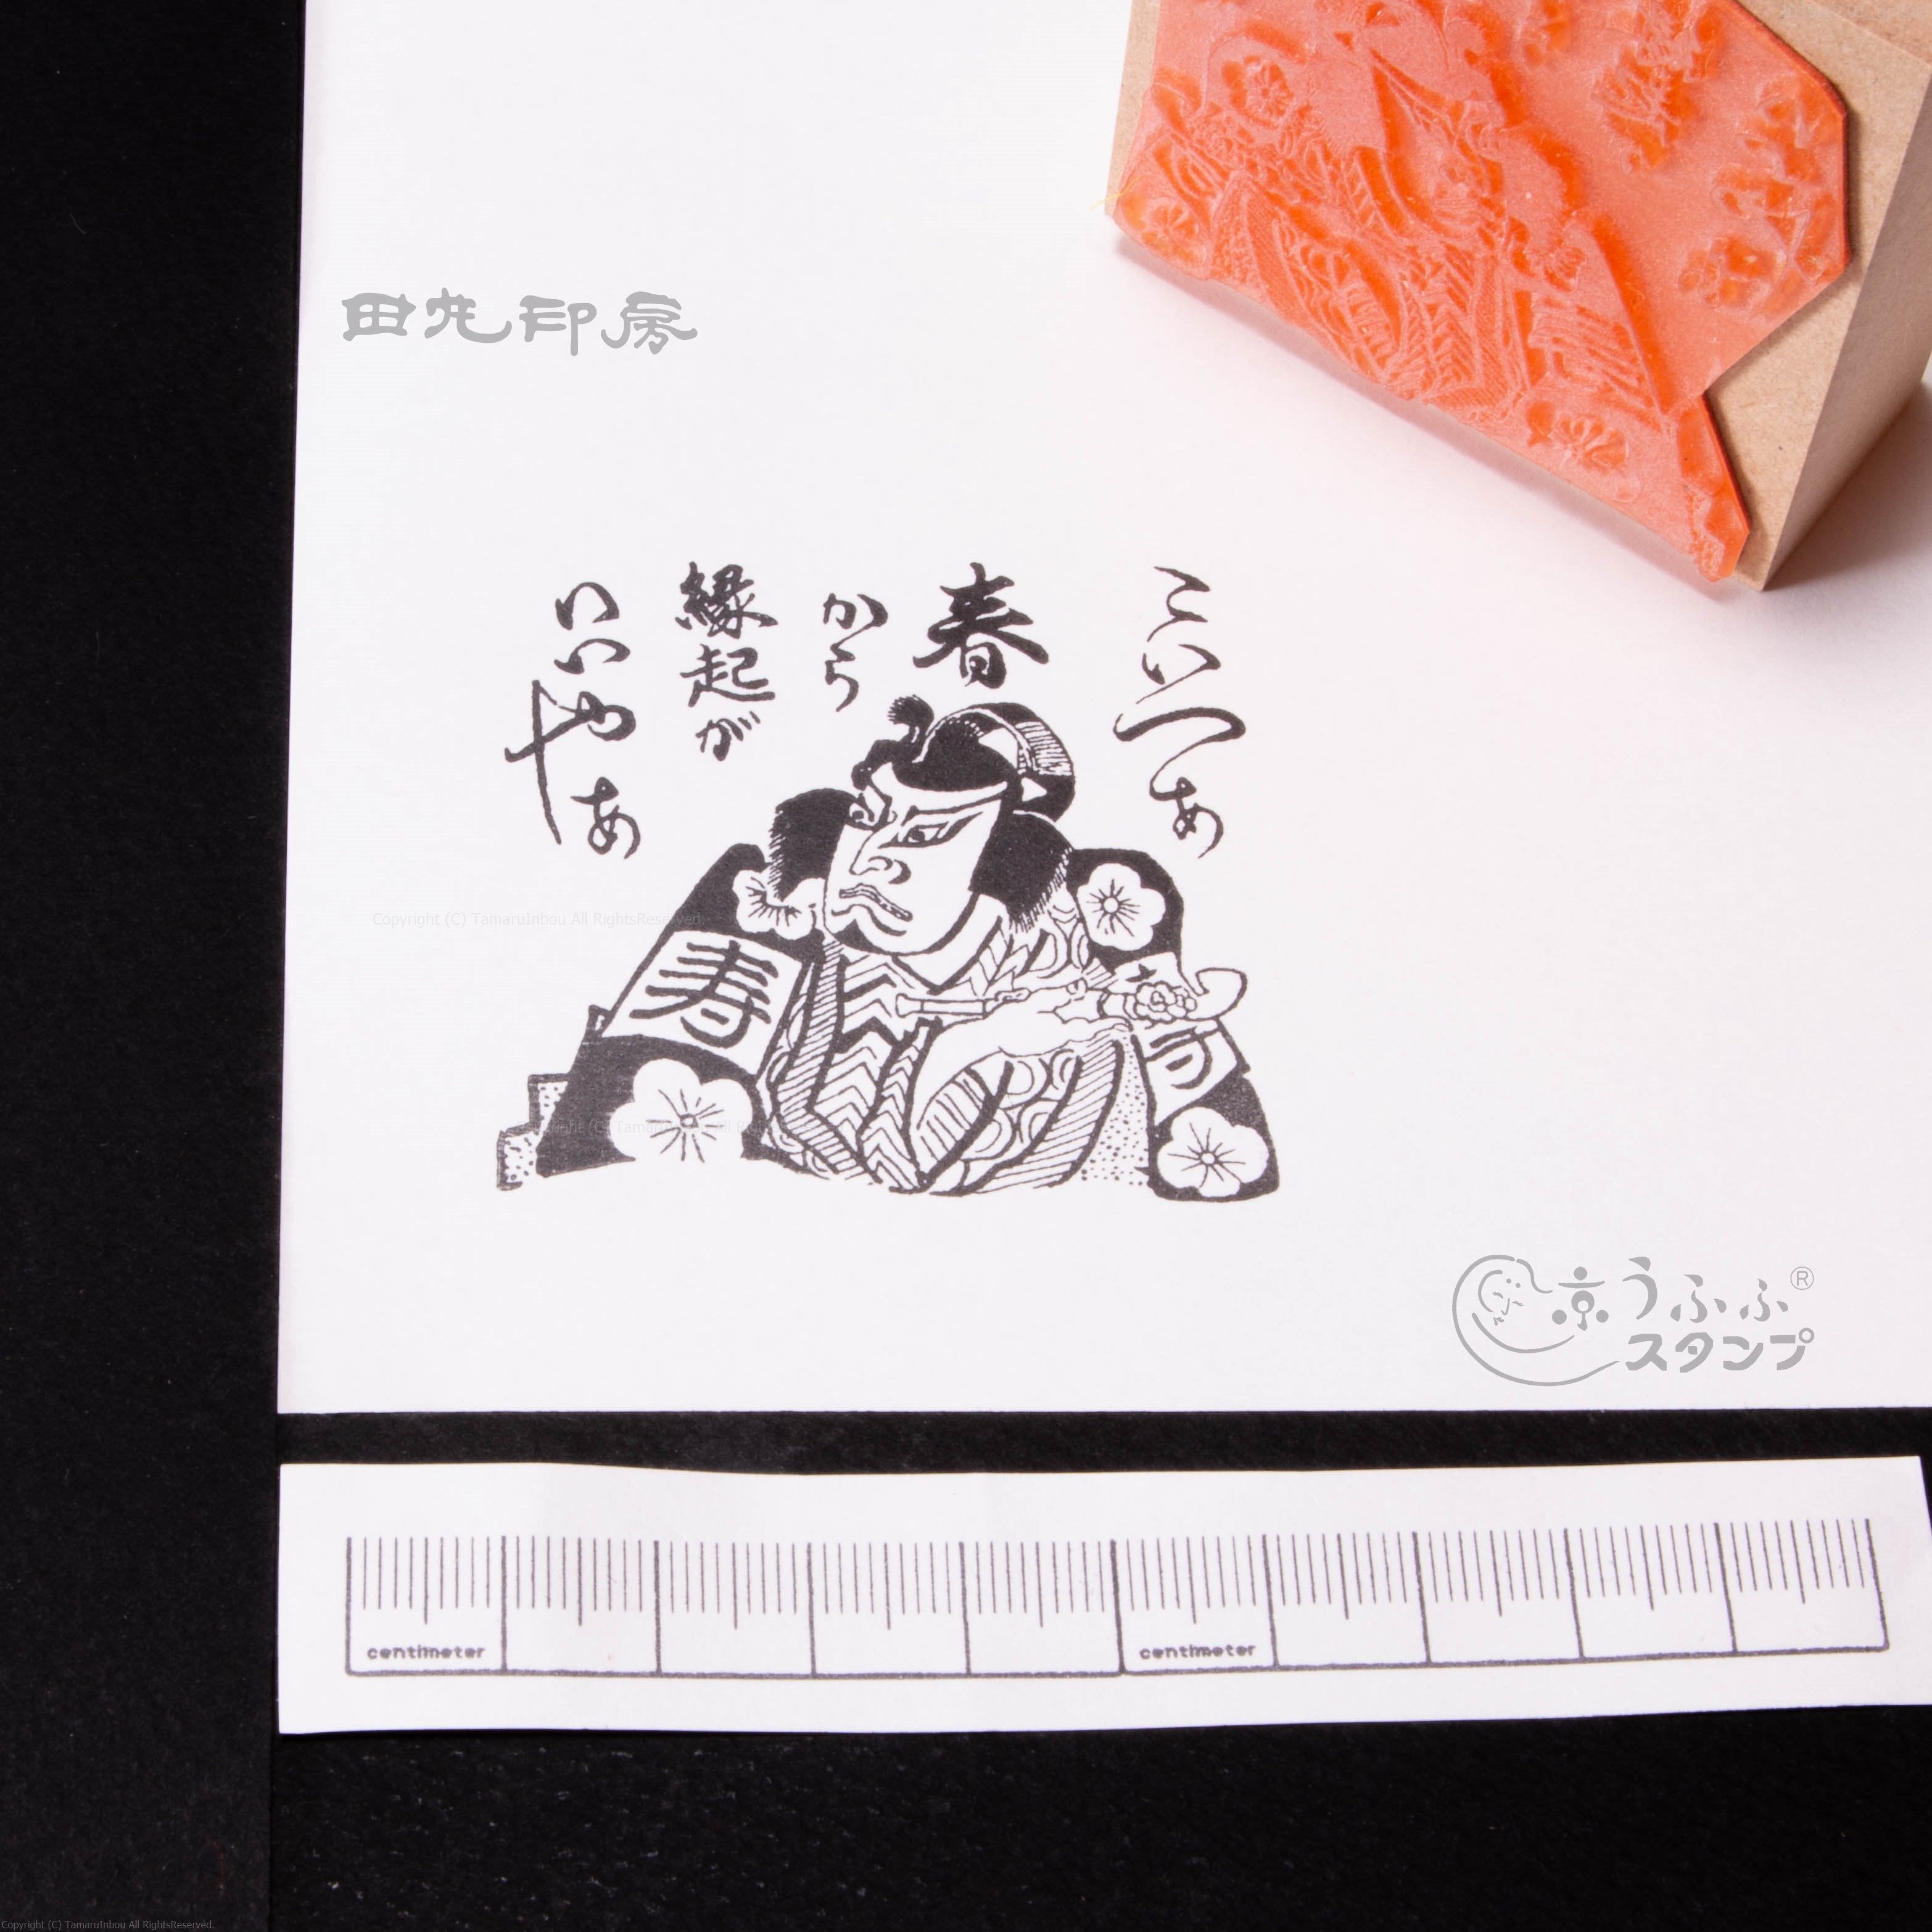 田丸印房
こいつあ
春
から
縁起が
いいやあ
寿
寿
Copyright (C) TamaruInbou All RightsReserved.
Copyright (C) TamaruInbou All RightsReserved.
京うふふ®
スタンプ
centimeter centimeter
Copyright (C) TamaruInbou All RightsReserved.